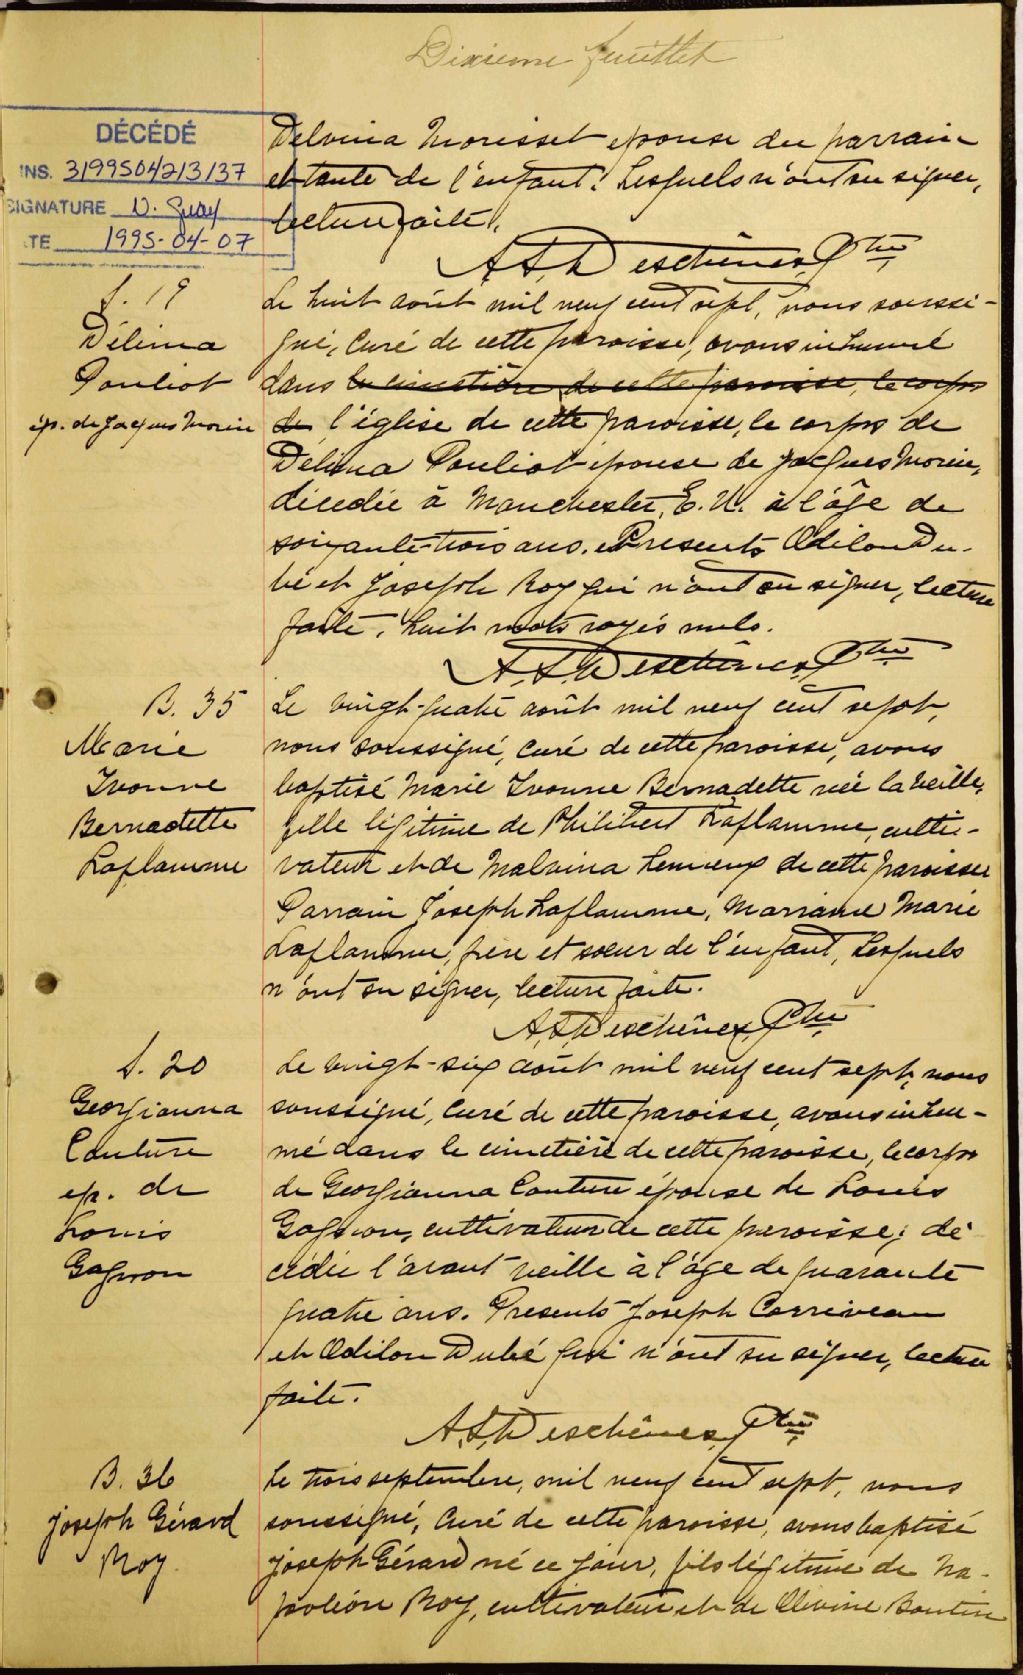 Dixieme feuillet
DÉCÉDÉ
INS. 3199504213137
SIGNATURE N. Guay
TE 1995-04-07
Delvina Morisset epouse du parrain
et tante de l'enfant. Lesquels n'ont su signer,
lecture faite.
A.S. Deschênes, Ptre
S. 19
Délima
Pouliot
ép. de Jacques Morin
Le huit août mil neuf cent sept, nous soussi-
gné, curé de cette paroisse, avons inhumé
dans le cimetière de cette paroisse, le corps
de l'église de cette paroisse, le corps de
Délima Pouliot épouse de Jacques Morin,
décédée à Manchester, E. U. à l'âge de
soixante-trois ans. Presents Odilon Du-
bé et Joseph Roy qui n'ont su signer, lecture
faite. huit mots rayés nuls.
A.S. Deschênes, Ptre
B. 35
Marie
Ivonne
Bernadette
Laflamme
Le vingt-quatre août mil neuf cent sept,
nous soussigné, curé de cette paroisse, avons
baptisé Marie Ivonne Bernadette née la veille,
fille légitime de Philibert Laflamme, culti-
vateur et de Malvina Lemieux de cette paroisse
Parrain Joseph Laflamme, Marraine Marie
Laflamme, frère et soeur de l'enfant, Lesquels
n'ont su signer, lecture faite.
A.S. Deschênes, Ptre
S. 20
Georgianna
Couture
ep. de
Louis
Gagnon
Le vingt-six août mil neuf cent sept, nous
soussigné, curé de cette paroisse, avons inhu-
mé dans le cimetière de cette paroisse, le corps
de Georgianna Couture épouse de Louis
Gagnon, cultivateur de cette paroisse, dé
cédée l'avant veille à l'âge de quarante
quatre ans. Presents Joseph Corriveau
et Odilon Dubé qui n'ont su signer, lecture
faite.
A.S. Deschênes, Ptre
B. 36
Joseph Gérard
Roy
Le trois septembre, mil neuf cent sept, nous
soussigné, curé de cette paroisse, avons baptisé
Joseph Gérard né ce jour, fils légitime de Na-
poléon Roy, cultivateur et de Olivine Boutin